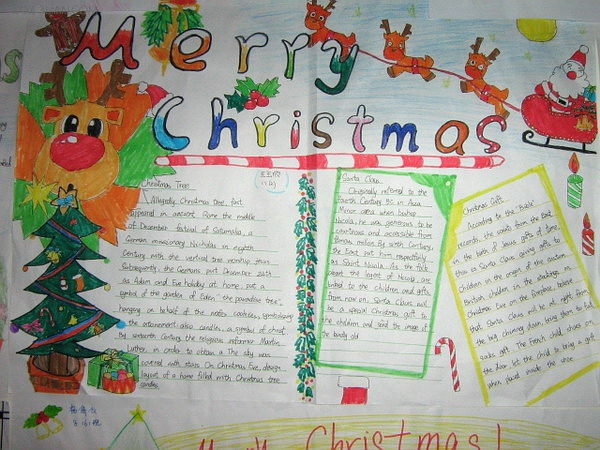 Merry
Christmas
Christmas Tree
Allegedly Christmas tree, first
appeared in ancient Rome the middle
of December festival of Saturnalia, a
German missionary Nicholas in eighth
Century with the vertical tree
Subsequently, the Germans put December 24th
as Adam and Eve holiday at home, put a
symbol of the garden of Eden "the paradise tree"
hanging on behalf of the cookies, symbolizing
the atonement also candles, a symbol of christ
by sixteenth Century the religious reformer Martin
Luther, in order to obtain a The sky was
covered with stars On Christmas Eve, design
layout of a home filled with Christmas tree
candles
Santa Claus
Originally referred to the
Fourth Century BC in Asia
Minor area when bishop
Nicola, he was generous to be
courteous and accessible from
famous
the East put him respectfully
as Saint Nicola. As the fact
about the legend of Nicola are
linked to the children and gifts
from now on Santa Claus will
be a special Christmas gift to
the children and send the image of
the kindly old
Christmas Gift
According to the "Bible"
records, the saints from the East
in the birth of Jesus gifts of time,
this is Santa Claus giving gifts to
Children in the origin of the custom
British children in the stockings on
Christmas Eve on the fireplace, believe
that Santa Claus will be at night from
the big chimney down, bring them to full
socks gift. The French child shoes on
the door let the child to bring a gift
when placed inside the
Merry Christmas!